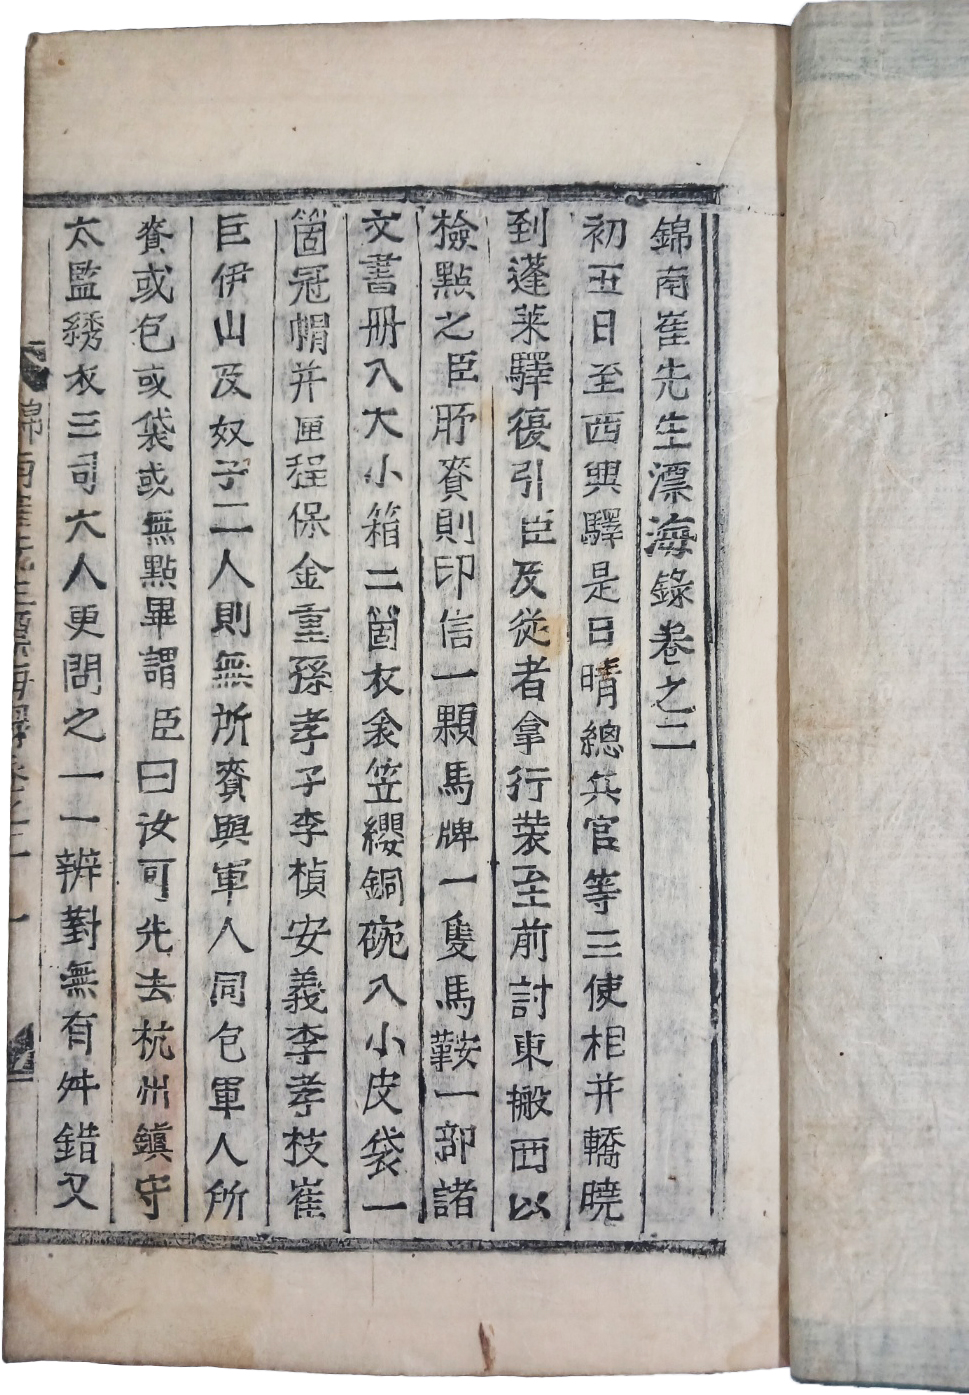 錦南崔先生漂海錄卷之二
初五日至西興驛是日晴總兵官等三使相并轎曉
到蓬萊驛復引臣及從者拿行裝至前討東搬西以
檢點之臣所賫則印信一顆馬牌一隻馬鞍一部諸
文書冊入大小箱二箇衣衾笠纓銅碗入小皮袋一
箇冠帽并匣程保金重孫孝子李楨安義李孝枝崔
巨伊山及奴子二人則無所賫與軍人同包軍人所
賫或包或袋或無點畢謂臣曰汝可先去杭州鎭守
太監綉衣三司大人更問之一一辨對無有舛錯又
錦南崔先生漂海錄卷之二 一